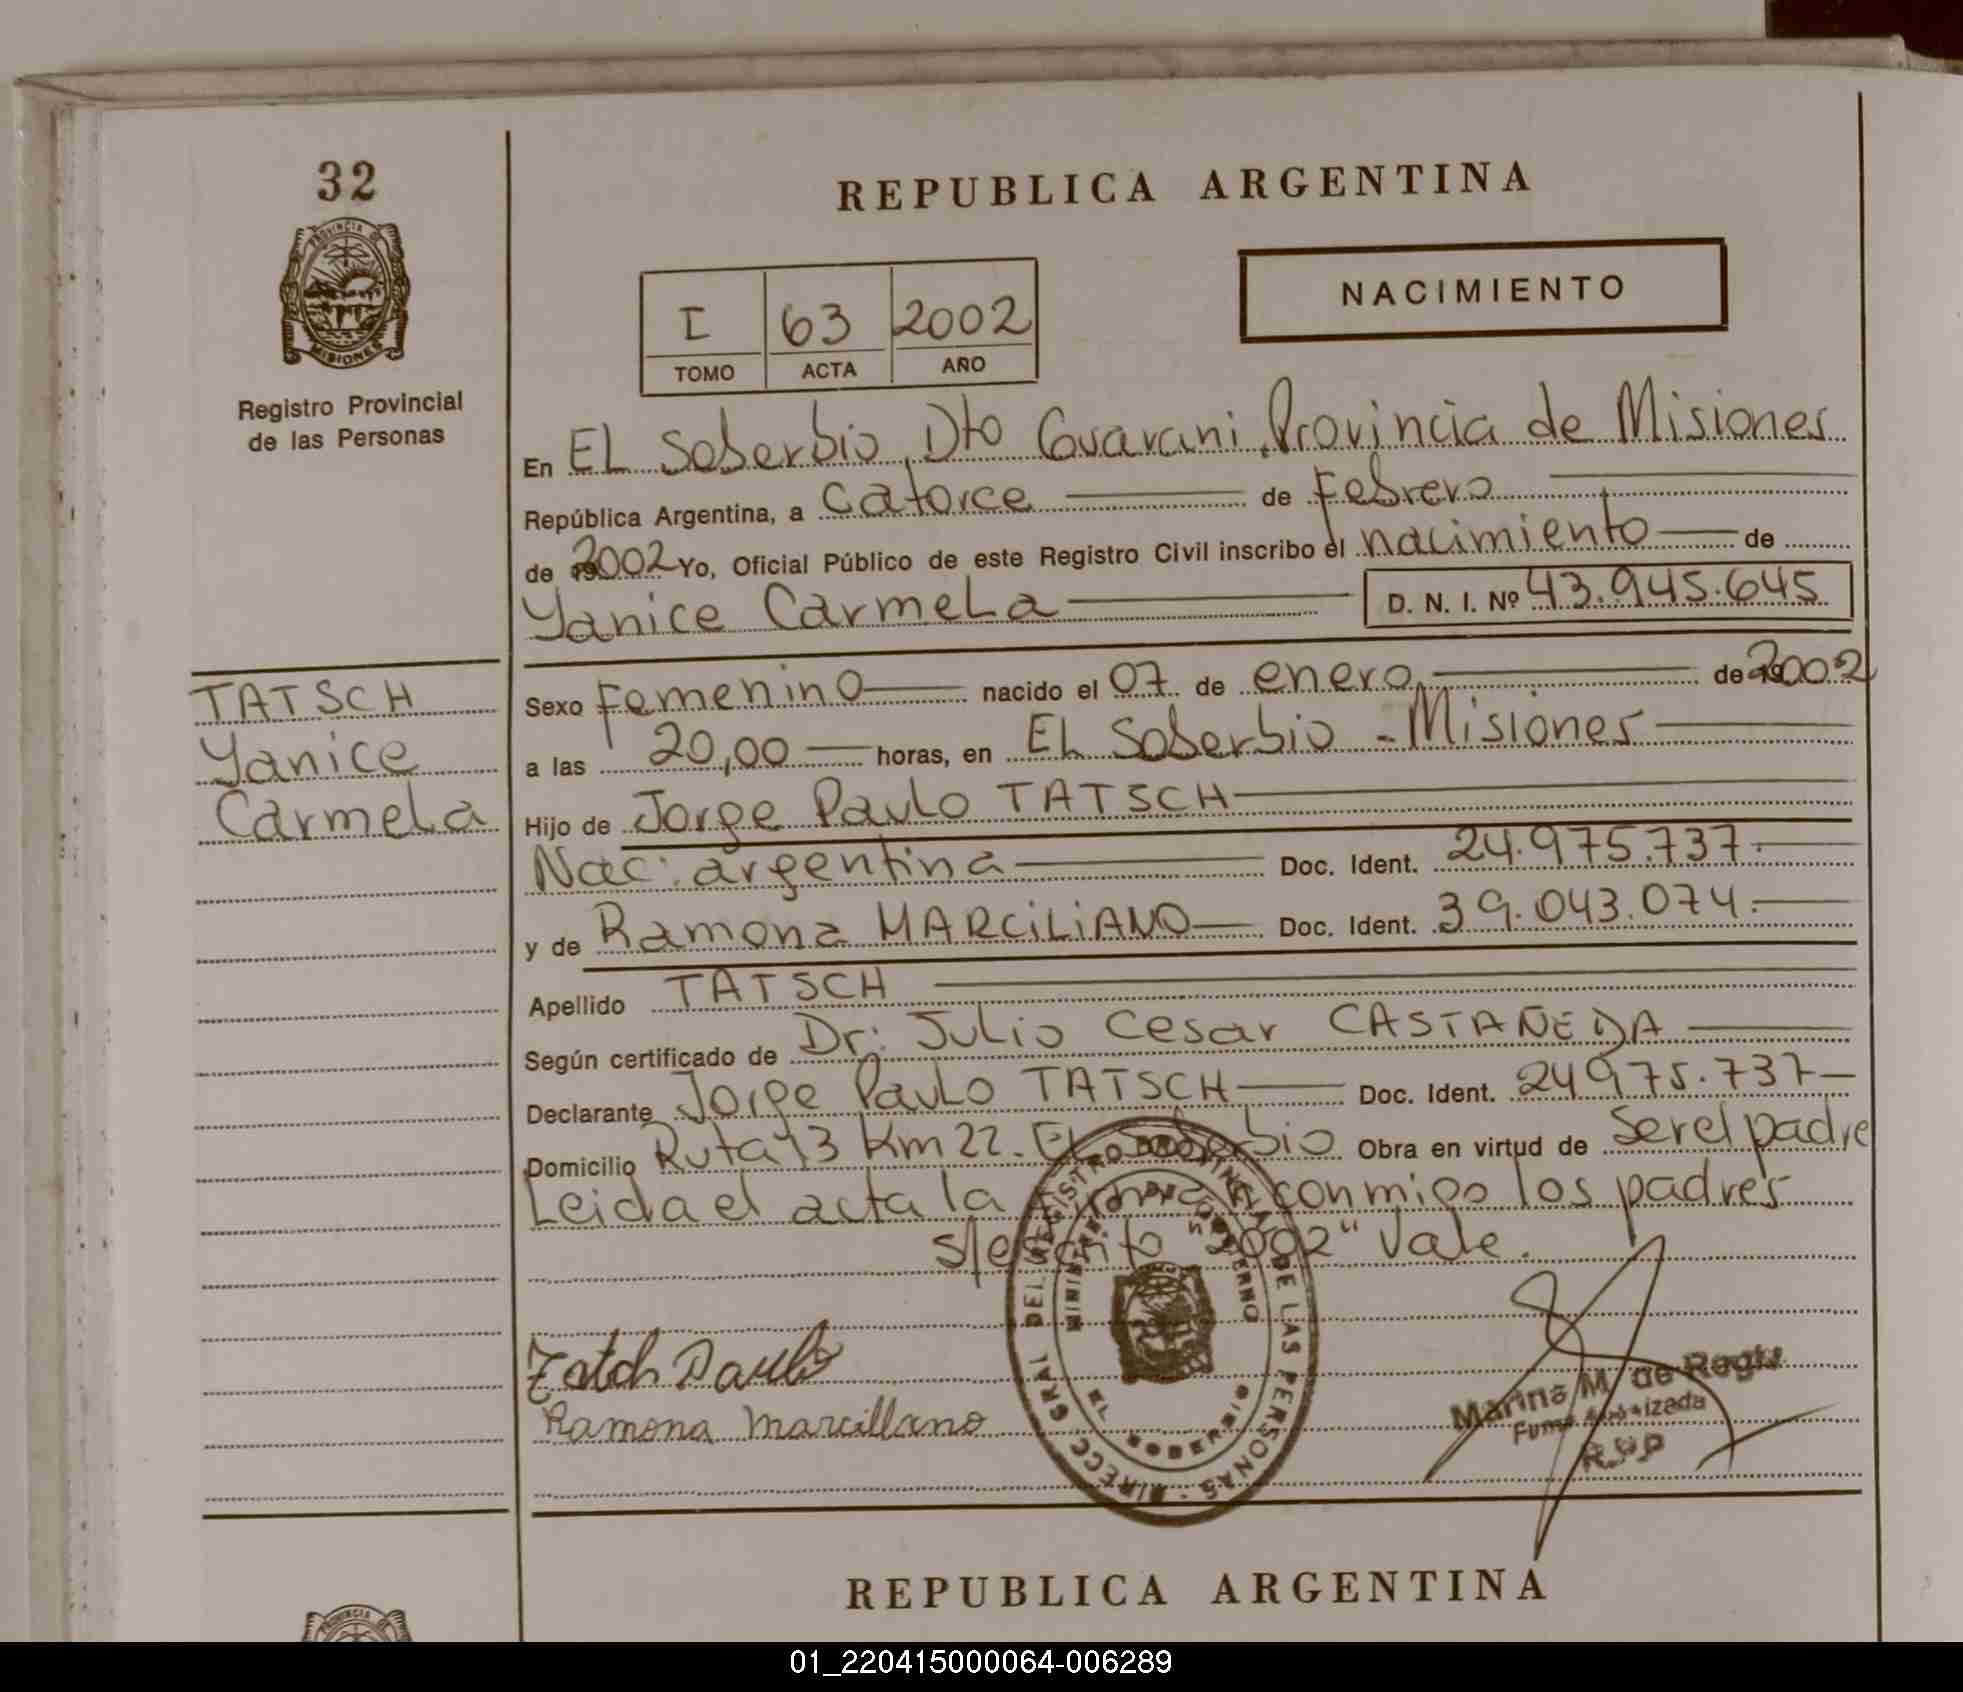 32
PROVINCIA DE
MISIONES
Registro Provincial
de las Personas
REPUBLICA ARGENTINA
NACIMIENTO
I 63 2002
TOMO ACTA AÑO
En EL Soberbio, Dto Guarani, Provincia de Misiones
República Argentina, a catorce de Febrero
de 2002 Yo, Oficial Público de este Registro Civil inscribo el nacimiento de
Yanice Carmela D. N. I. Nº 43.945.645
TATSCH
Yanice
Carmela
Sexo Femenino nacido el 07 de enero de 2002
a las 20,00 horas, en EL Soberbio - Misiones
Hijo de Jorge Paulo TATSCH
Nac: argentina Doc. Ident. 24.975.737.
y de Ramona MARCILIANO Doc. Ident. 39.043.074.
Apellido TATSCH
Según certificado de Dr: Julio Cesar CASTAÑEDA
Declarante Jorge Paulo TATSCH Doc. Ident. 24975.737
Domicilio Ruta 13 Km 22. EL Soberbio Obra en virtud de ser el padre
Leida el acta la firman conmigo los padres
s/escrito "2002" Vale.
DIRECC GRAL DEL REGISTRO PROVINCIAL DE LAS PERSONAS
MINISTERIO DE GOBIERNO
EL SOBERBIO
Ramona Marcillano
Marina M. de
R.P.P
REPUBLICA ARGENTINA
PROVINCIA DE
01_220415000064-006289